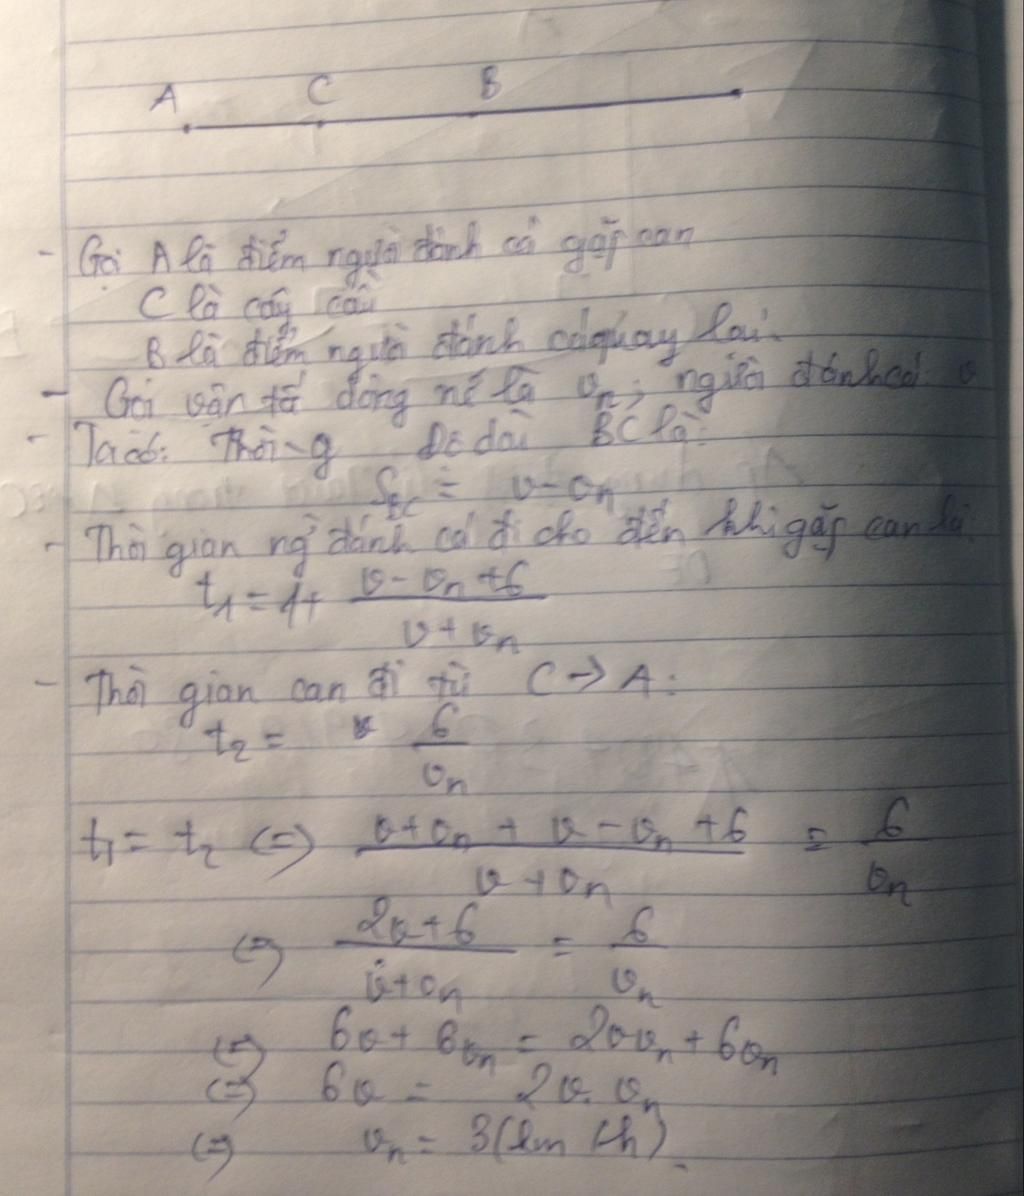 A C B
- Gọi A là điểm người đánh cá gặp can
C là cây cầu
B là điểm người đánh cá quay lại.
- Gọi vận tố dòng nc là vn, người đánh cá v
- Ta có: Độ dài BC là:
S_BC = v - vn
- Thời gian ng đánh cá đi cho đến khi gặp can là
t1 = 1 + (v - vn + 6)/(v + vn)
- Thời gian can đi từ C → A:
t2 = 6/vn
t1 = t2 (=) (v + vn + v - vn + 6)/(v + vn) = 6/vn
(=) (2v + 6)/(v + vn) = 6/vn
(=) 6v + 6vn = 2v vn + 6vn
(=) 6v = 2v. vn
(=) vn = 3 (km/h).